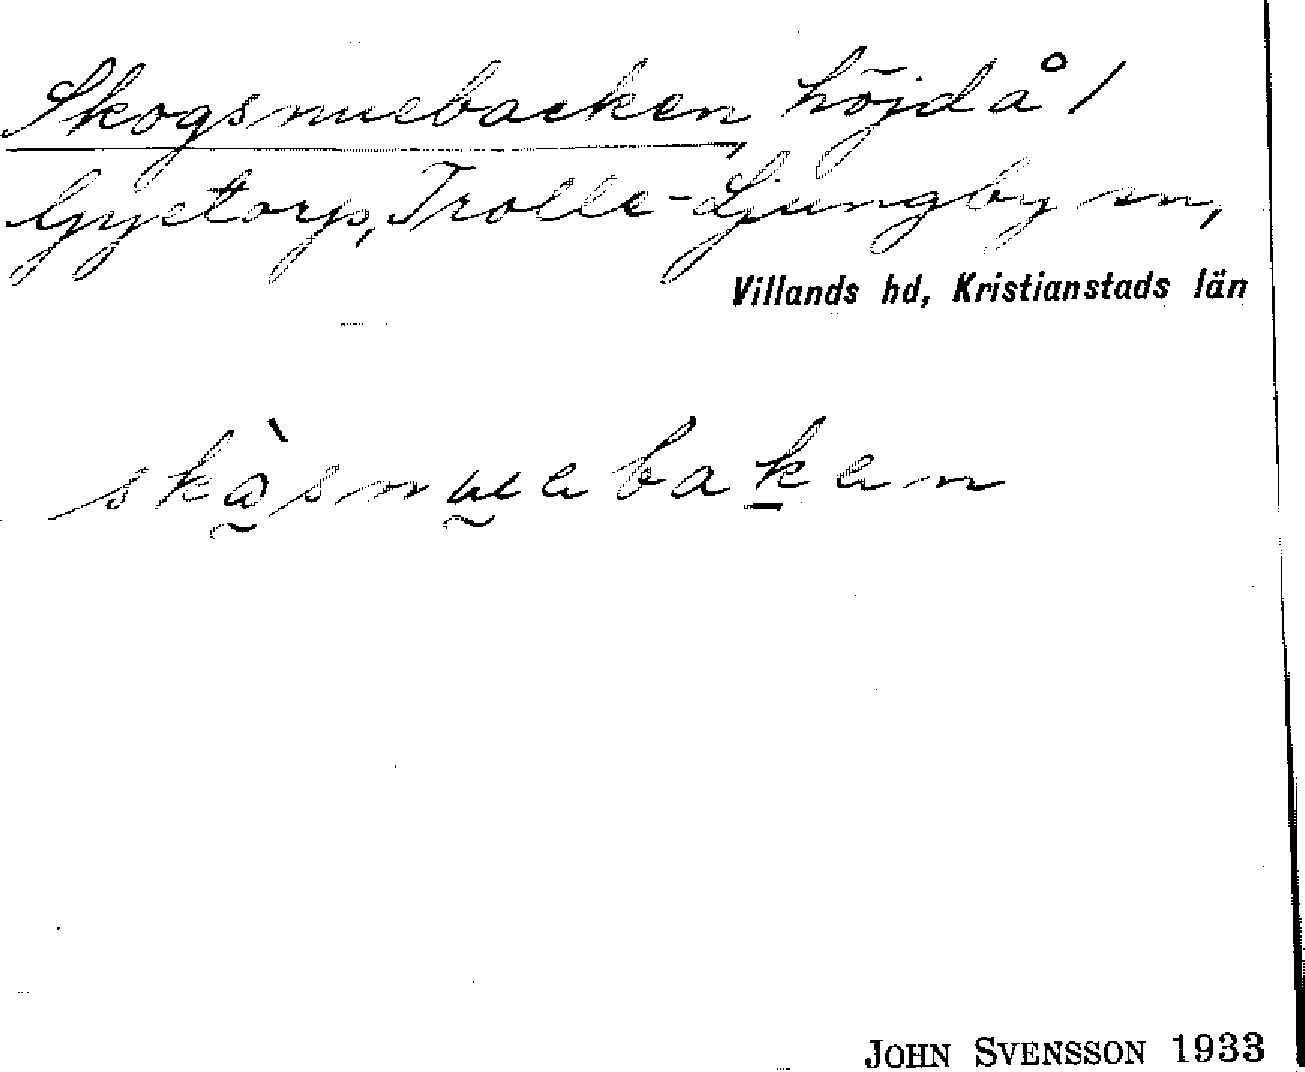 Skogsnuebacken, höjd å 1
Gyetorp, Trolle-Ljungby sn,
Villands hd, Kristianstads län
skàsnuebaken
JOHN SVENSSON 1933